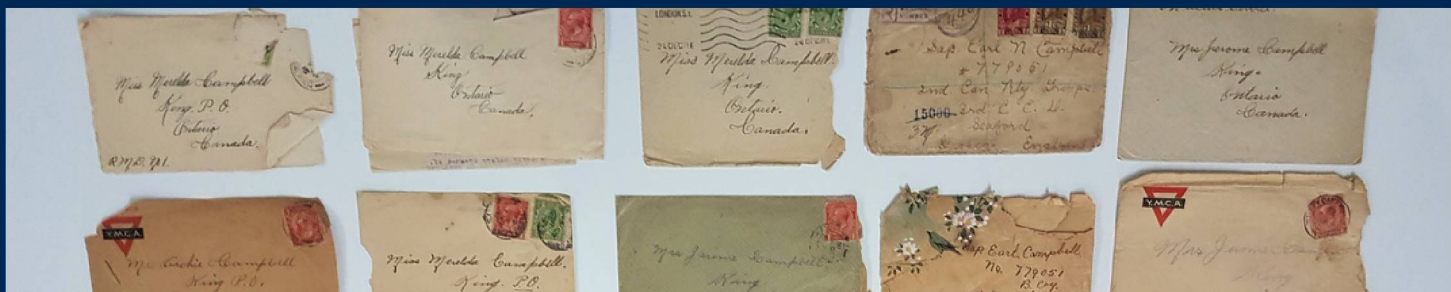 Miss Merelda Campbell
King P.O.
Ontario
Canada.
R.M.D. No1.
Miss Merelda Campbell
King
Ontario
Canada.
LONDON S.E.
24 DEC
Miss Merelda Campbell.
King.
Ontario.
Canada.
NUMBER
Sap. Earl N Campbell
# 779051
2nd Can Rly Troops
15000 2nd C. C. D.
Seaford
England
Mrs Jerome Campbell
King.
Ontario
Canada.
Y.M.C.A.
Mr Archie Campbell
King P.O.
Miss Merelda Campbell.
King. P.O.
Mrs Jerome Campbell
King
Sap Earl Campbell
No. 779051
B. Coy.
Y.M.C.A.
Mrs Jerome
King